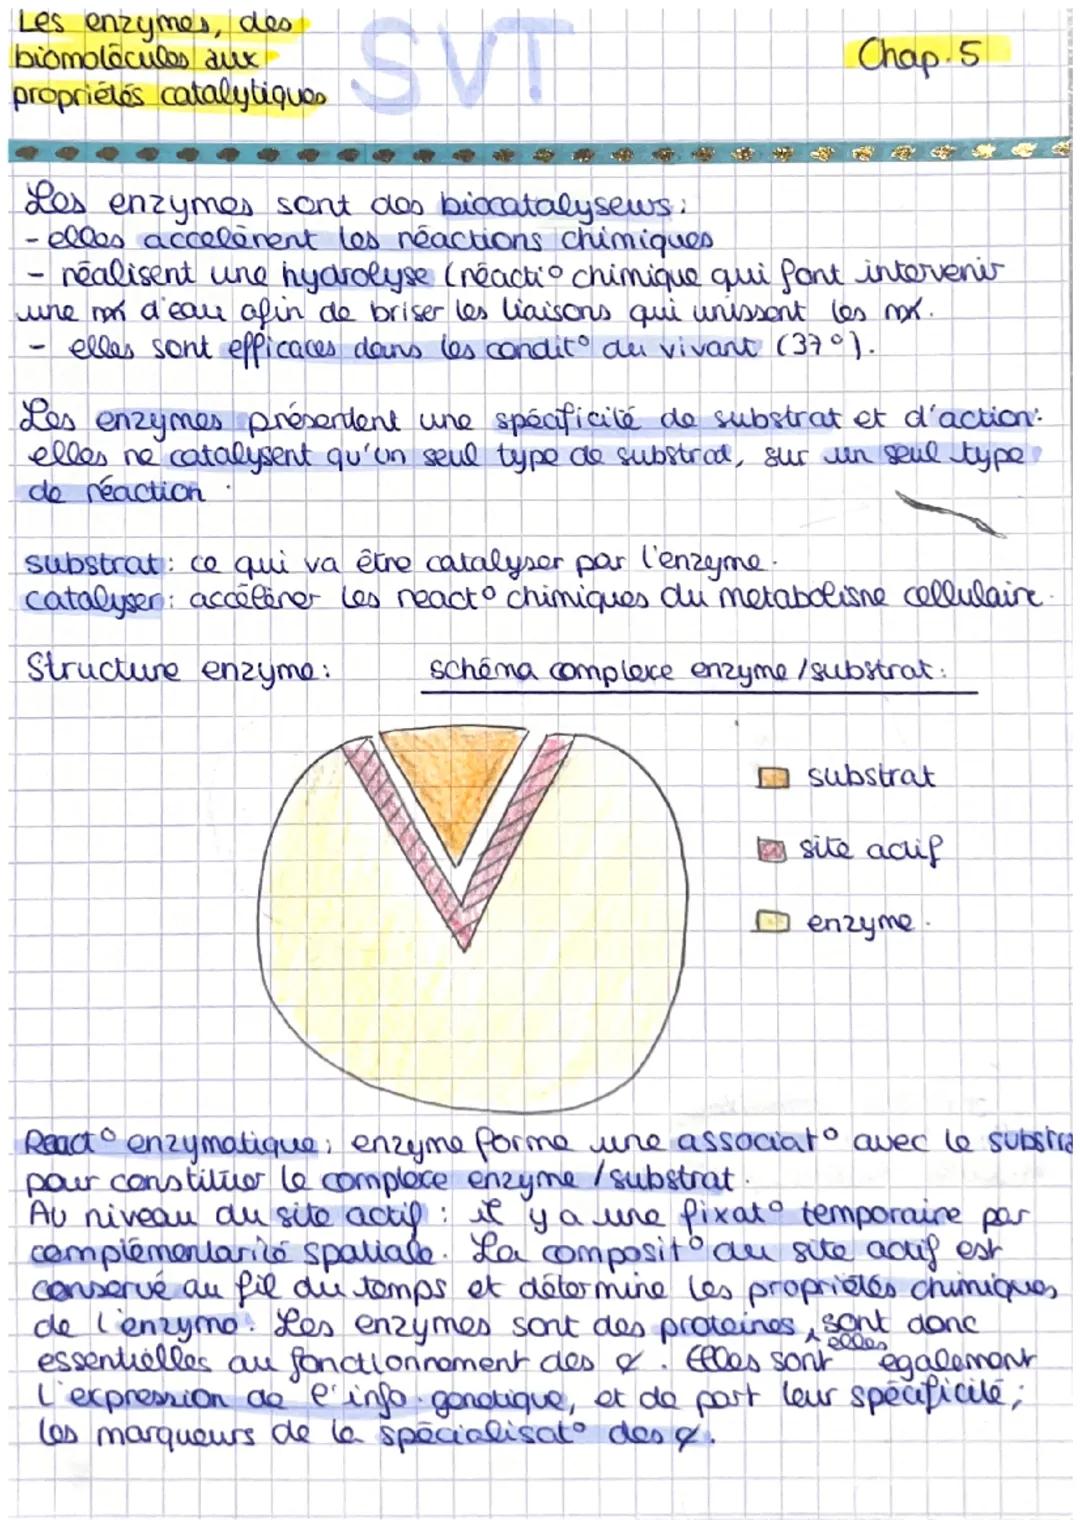 Les enzymes, des
biomolécules aux
propriétés catalytiques
SVT
Chap. 5
Les enzymes sont des biocatalyseurs :
- elles accelèrent les réactions chimiques
- réalisent une hydrolyse (réacti° chimique qui font intervenir
une d'eau afin de briser les liaisons qui unissent les
- elles sont efficaces dans les condit° du vivant (37°).
Les enzymes présentent une spécificité de substrat et d'action :
elles ne catalysent qu'un seul type de substrat, sur un seul type
de réaction.
substrat : ce qui va être catalyser par l'enzyme.
catalyser : accélérer les react° chimiques du metabolisne cellulaire.
Structure enzyme :
schéma complexe enzyme / substrat :
substrat
site actif
enzyme.
React° enzymatique ; enzyme forme une associat° avec le substra
pour constituer le complexe enzyme / substrat.
Au niveau du site actif : il y a une fixat° temporaire par
complémentarité spatiale. La composit° du site actif est
conservé au fil du temps et détermine les propriétés chimiques
de l'enzyme. Les enzymes sont des proteines, elles sont donc
essentielles au fonctionnement des ¢. Elles sont également
l'expression de l'info génétique, et de part leur spécificité ;
les marqueurs de la spécialisat° des ¢.